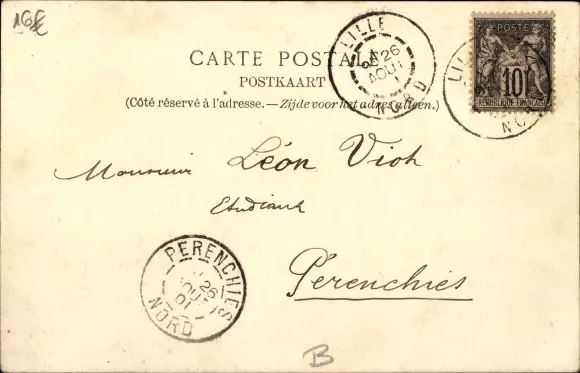 16€
CARTE POSTALE
POSTKAART
(Côté réservé à l'adresse. — Zijde voor het adres alleen.)
LILLE
26
AOUT
NORD
POSTE
10
REPUBLIQUE FRANÇAISE
LI
NO
Monsieur Léon Vioh
Etudiant
Perenchies
PERENCHIES
26
AOUT
01
NORD
B